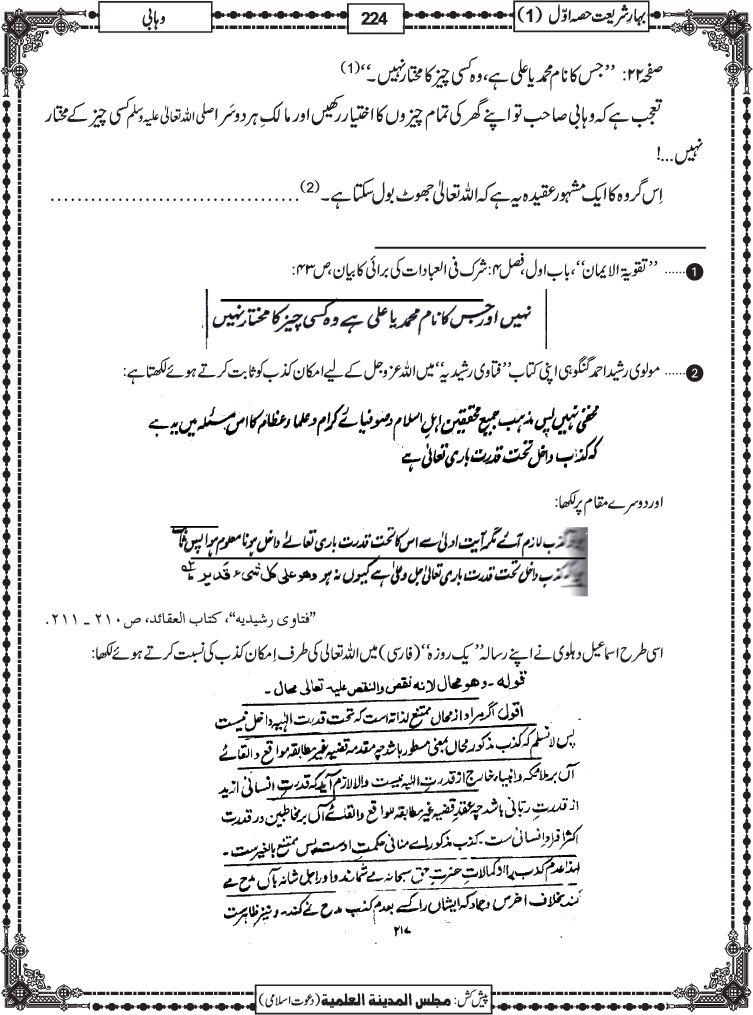 بہارِشریعت حصہ اوّل (1)
224
وہابی
صفحہ ۲۲: ’’جس کا نام محمد یا علی ہے، وہ کسی چیز کا مختار نہیں۔‘‘(1)
تعجب ہے کہ وہابی صاحب تو اپنے گھر کی تمام چیزوں کا اختیار رکھیں اور مالکِ ہر دوسَرا صلی اللہ تعالیٰ علیہ وسلم کسی چیز کے مختار
نہیں...!
اِس گروہ کا ایک مشہور عقیدہ یہ ہے کہ اللہ تعالیٰ جھوٹ بول سکتا ہے۔(2) ......................................
❶...... ’’تقویۃ الایمان‘‘، باب اول، فصل ۴: شرک فی العبادات کی برائی کا بیان، ص۴۳:
نہیں اور جس کا نام محمد یا علی ہے وہ کسی چیز کا مختار نہیں
❷...... مولوی رشید احمد گنگوہی اپنی کتاب ’’فتاوی رشیدیہ‘‘ میں اللہ عزوجل کے لیے امکان کذب کو ثابت کرتے ہوئے لکھتا ہے:
مخفی نہیں پس مذہب جمیع محققین اہلِ اسلام و صوفیائے کرام و علماء و عظام کا اس مسئلہ میں یہ ہے
کہ کذب داخل تحت قدرت باری تعالیٰ ہے
اور دوسرے مقام پر لکھا:
کذب لازم آئے مگر آیت اولیٰ سے اس کا تحت قدرت باری تعالےٰ داخل ہونا معلوم ہوا پس ثابت
ہوا کہ کذب داخل تحت قدرت باری تعالیٰ جل وعلیٰ ہے کیوں نہ ہو وھو علی کل شیء قدیر
’’فتاوی رشیدیه‘‘، کتاب العقائد، ص۲۱۰ ـ ۲۱۱.
اسی طرح اسماعیل دہلوی نے اپنے رسالہ ’’یک روزہ‘‘ (فارسی) میں اللہ تعالی کی طرف اِمکان کذب کی نسبت کرتے ہوئے لکھا:
قوله ـ وھو محال لانه نقص والنقص علیه تعالی محال ـ
اقول اگر مراد از محال ممتنع لذاتہ است کہ تحت قدرت الٰہیہ داخل نیست
پس لا نسلم کہ کذب مذکور محال بمعنی مسطور باشد چہ مقدمہ قضیہ غیر مطابقہ مواقع والقائے
آں بر ملائکہ و انبیاء خارج از قدرتِ الٰہیہ نیست والا لازم آید کہ قدرتِ انسانی ازید
از قدرتِ ربانی باشد چہ عقد قضیہ غیر مطابقہ للواقع والقائے آں بر مخاطبین در قدرت
اکثر افراد انسانی ست۔ کذب مذکور اے منافی حکمتِ اوست پس ممتنع بالغیر ست۔
لہذا عدم کذب را از کمالاتِ حضرت حق سبحانہ مے شمارند و او را جل شانہ بآں مدح مے
کنند بخلاف اخرس و جماد کہ ایشاں را کسے بعدم کذب مدح نمے کند۔ و نیز ظاہر ست
۲۱۷
پیش کش: مجلس المدینة العلمیة (دعوت اسلامی)